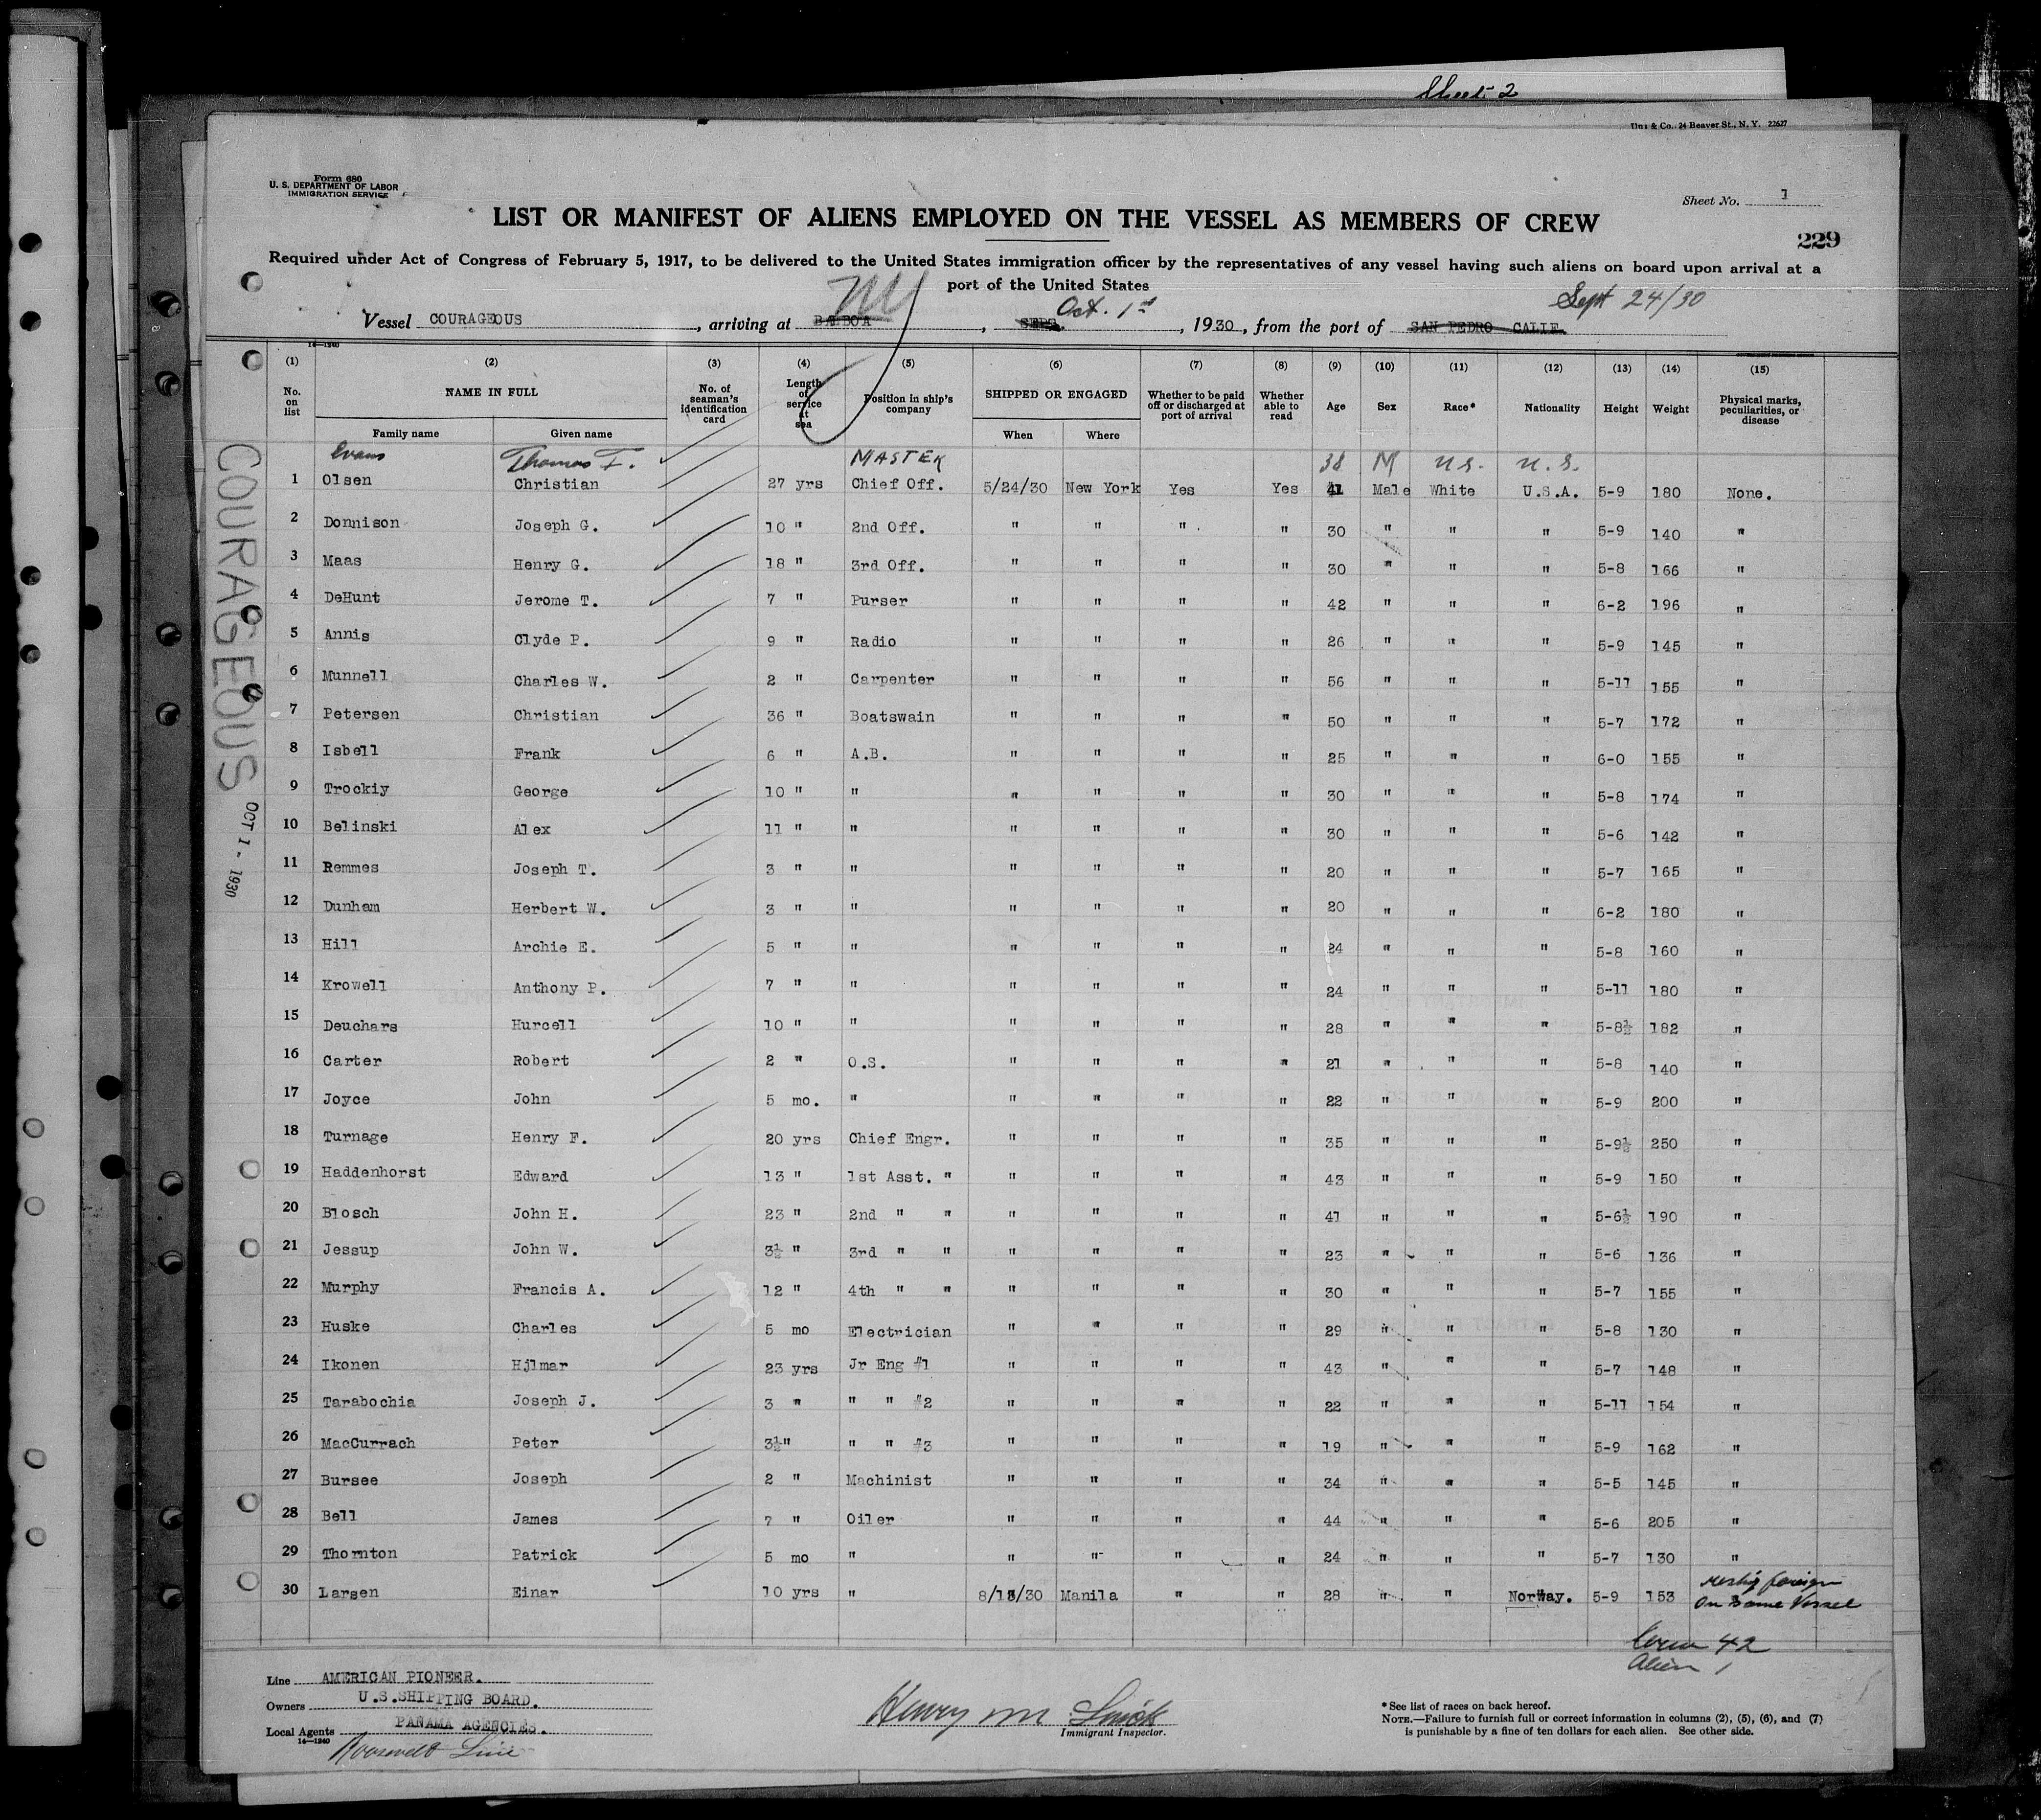 Sheet 2
& Co. 24 Beaver St., N. Y. 22627
Form 680
U. S. DEPARTMENT OF LABOR
IMMIGRATION SERVICE
Sheet No. 1
LIST OR MANIFEST OF ALIENS EMPLOYED ON THE VESSEL AS MEMBERS OF CREW
229
Required under Act of Congress of February 5, 1917, to be delivered to the United States immigration officer by the representatives of any vessel having such aliens on board upon arrival at a
port of the United States
NY Oct. 1st Sept 24/30
Vessel COURAGEOUS, arriving at BALBOA, SEPT., 1930, from the port of SAN PEDRO CALIF.
14—1240
(1) (2) (3) (4) (5) (6) (7) (8) (9) (10) (11) (12) (13) (14) (15)
No. on list NAME IN FULL No. of seaman's identification card Length of service at sea Position in ship's company SHIPPED OR ENGAGED Whether to be paid off or discharged at port of arrival Whether able to read Age Sex Race* Nationality Height Weight Physical marks, peculiarities, or disease
Family name Given name When Where
Evans Thomas F. MASTER 38 M U.S. U.S.
1 Olsen Christian 27 yrs Chief Off. 5/24/30 New York Yes Yes 41 Male White U.S.A. 5-9 180 None.
2 Donnison Joseph G. 10 " 2nd Off. " " " " 30 " " " 5-9 140 "
3 Maas Henry G. 18 " 3rd Off. " " " " 30 " " " 5-8 166 "
4 DeHunt Jerome T. 7 " Purser " " " " 42 " " " 6-2 196 "
5 Annis Clyde P. 9 " Radio " " " " 26 " " " 5-9 145 "
6 Munnell Charles W. 2 " Carpenter " " " " 56 " " " 5-11 155 "
7 Petersen Christian 36 " Boatswain " " " " 50 " " " 5-7 172 "
8 Isbell Frank 6 " A.B. " " " " 25 " " " 6-0 155 "
9 Trockiy George 10 " " " " " " 30 " " " 5-8 174 "
10 Belinski Alex 11 " " " " " " 30 " " " 5-6 142 "
11 Remmes Joseph T. 3 " " " " " " 20 " " " 5-7 165 "
12 Dunham Herbert W. 3 " " " " " " 20 " " " 6-2 180 "
13 Hill Archie E. 5 " " " " " " 24 " " " 5-8 160 "
14 Krowell Anthony P. 7 " " " " " " 24 " " " 5-11 180 "
15 Deuchars Hurcell 10 " " " " " " 28 " " " 5-8½ 182 "
16 Carter Robert 2 " O.S. " " " " 21 " " " 5-8 140 "
17 Joyce John 5 mo. " " " " " 22 " " " 5-9 200 "
18 Turnage Henry F. 20 yrs Chief Engr. " " " " 35 " " " 5-9½ 250 "
19 Haddenhorst Edward 13 " 1st Asst. " " " " " 43 " " " 5-9 150 "
20 Blosch John H. 23 " 2nd " " " " " " 41 " " " 5-6½ 190 "
21 Jessup John W. 3½ " 3rd " " " " " " 23 " " " 5-6 136 "
22 Murphy Francis A. 12 " 4th " " " " " " 30 " " " 5-7 155 "
23 Huske Charles 5 mo Electrician " " " " 29 " " " 5-8 130 "
24 Ikonen Hjlmar 23 yrs Jr Eng #1 " " " " 43 " " " 5-7 148 "
25 Tarabochia Joseph J. 3 " " " #2 " " " " 22 " " " 5-11 154 "
26 MacCurrach Peter 3½" " " #3 " " " " 19 " " " 5-9 162 "
27 Bursee Joseph 2 " Machinist " " " " 34 " " " 5-5 145 "
28 Bell James 7 " Oiler " " " " 44 " " " 5-6 205 "
29 Thornton Patrick 5 mo " " " " " 24 " " " 5-7 130 "
30 Larsen Einar 10 yrs " 8/13/30 Manila " " 28 " " Norway. 5-9 153 foreign
On Same Vessel
COURAGEOUS OCT 1 - 1930
Crew 42
Alien 1
Line AMERICAN PIONEER.
Owners U.S.SHIPPING BOARD.
Local Agents PANAMA AGENCIES.
14—1240
Roosevelt Line
Henry M Smick
Immigrant Inspector.
*See list of races on back hereof.
NOTE.—Failure to furnish full or correct information in columns (2), (5), (6), and (7)
is punishable by a fine of ten dollars for each alien. See other side.